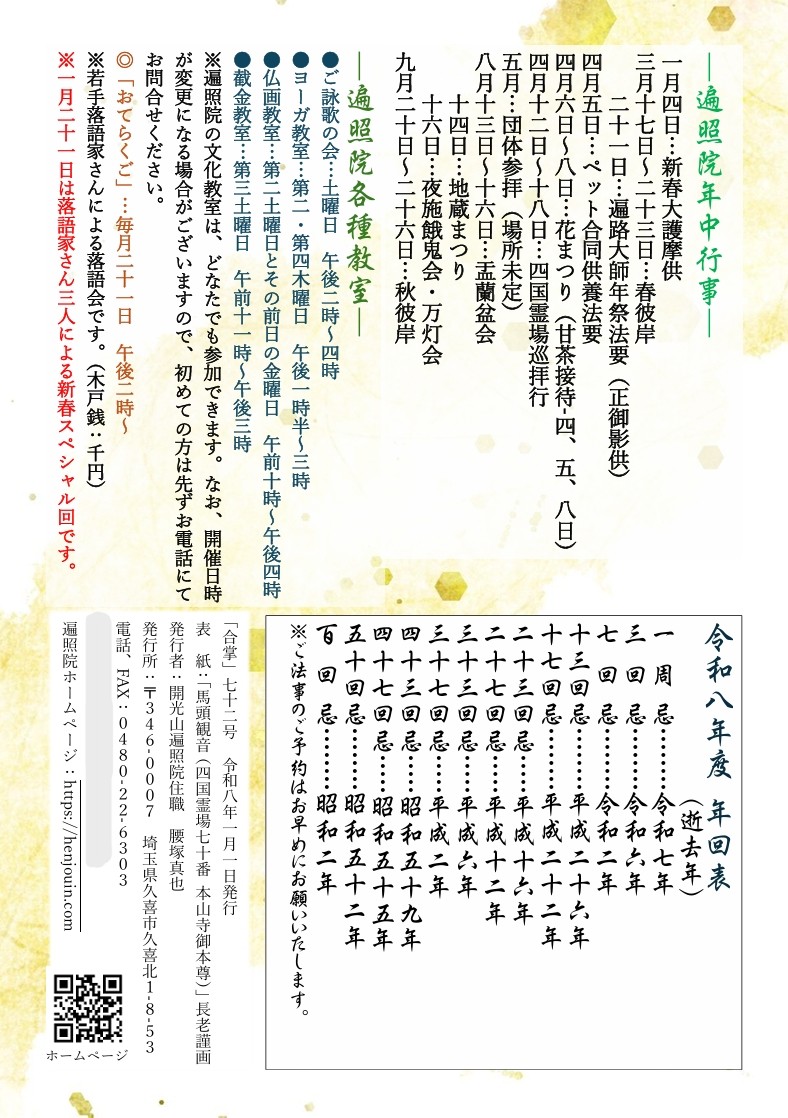 ―遍照院年中行事―
一月四日…新春大護摩供
三月十七日～二十三日…春彼岸
二十一日…遍路大師年祭法要（正御影供）
四月五日…ペット合同供養法要
四月六日～八日…花まつり（甘茶接待-四、五、八日）
四月十二日～十八日…四国霊場巡拝行
五月…団体参拝（場所未定）
八月十三日～十六日…盂蘭盆会
十四日…地蔵まつり
十六日…夜施餓鬼会・万灯会
九月二十日～二十六日…秋彼岸
―遍照院各種教室―
●ご詠歌の会…土曜日　午後二時～四時
●ヨーガ教室…第二・第四木曜日　午後一時半～三時
●仏画教室…第二土曜日とその前日の金曜日　午前十時～午後四時
●截金教室…第三土曜日　午前十一時～午後三時
※遍照院の文化教室は、どなたでも参加できます。なお、開催日時
が変更になる場合がございますので、初めての方は先ずお電話にて
お問合せください。
◎「おてらくご」…毎月二十一日　午後二時～
※若手落語家さんによる落語会です。（木戸銭：千円）
※一月二十一日は落語家さん三人による新春スペシャル回です。
令和八年度　年回表
（逝去年）
一周忌………令和七年
三回忌………令和六年
七回忌………令和二年
十三回忌………平成二十六年
十七回忌………平成二十二年
二十三回忌………平成十六年
二十七回忌………平成十二年
三十三回忌………平成六年
三十七回忌………平成二年
四十三回忌………昭和五十九年
四十七回忌………昭和五十五年
五十回忌………昭和五十二年
百回忌………昭和二年
※ご法事のご予約はお早めにお願いいたします。
「合掌」七十二号　令和八年一月一日発行
表　紙：「馬頭観音（四国霊場七十番 本山寺御本尊）」長老謹画
発行者：開光山遍照院住職　腰塚真也
発行所：〒346-0007　埼玉県久喜市久喜北1-8-53
電話、FAX：0480-22-6303
遍照院ホームページ：https://henjouin.com
ホームページ